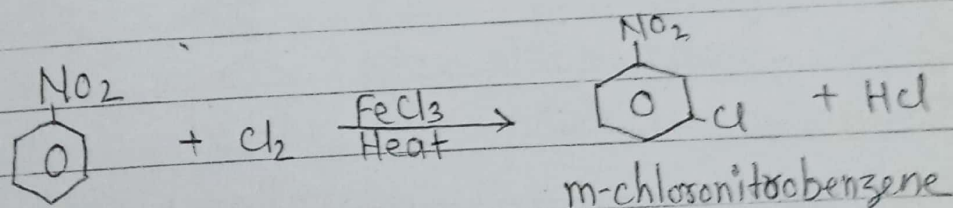 NO2 + Cl2 FeCl3 Heat NO2 Cl + HCl
m-chloronitrobenzene